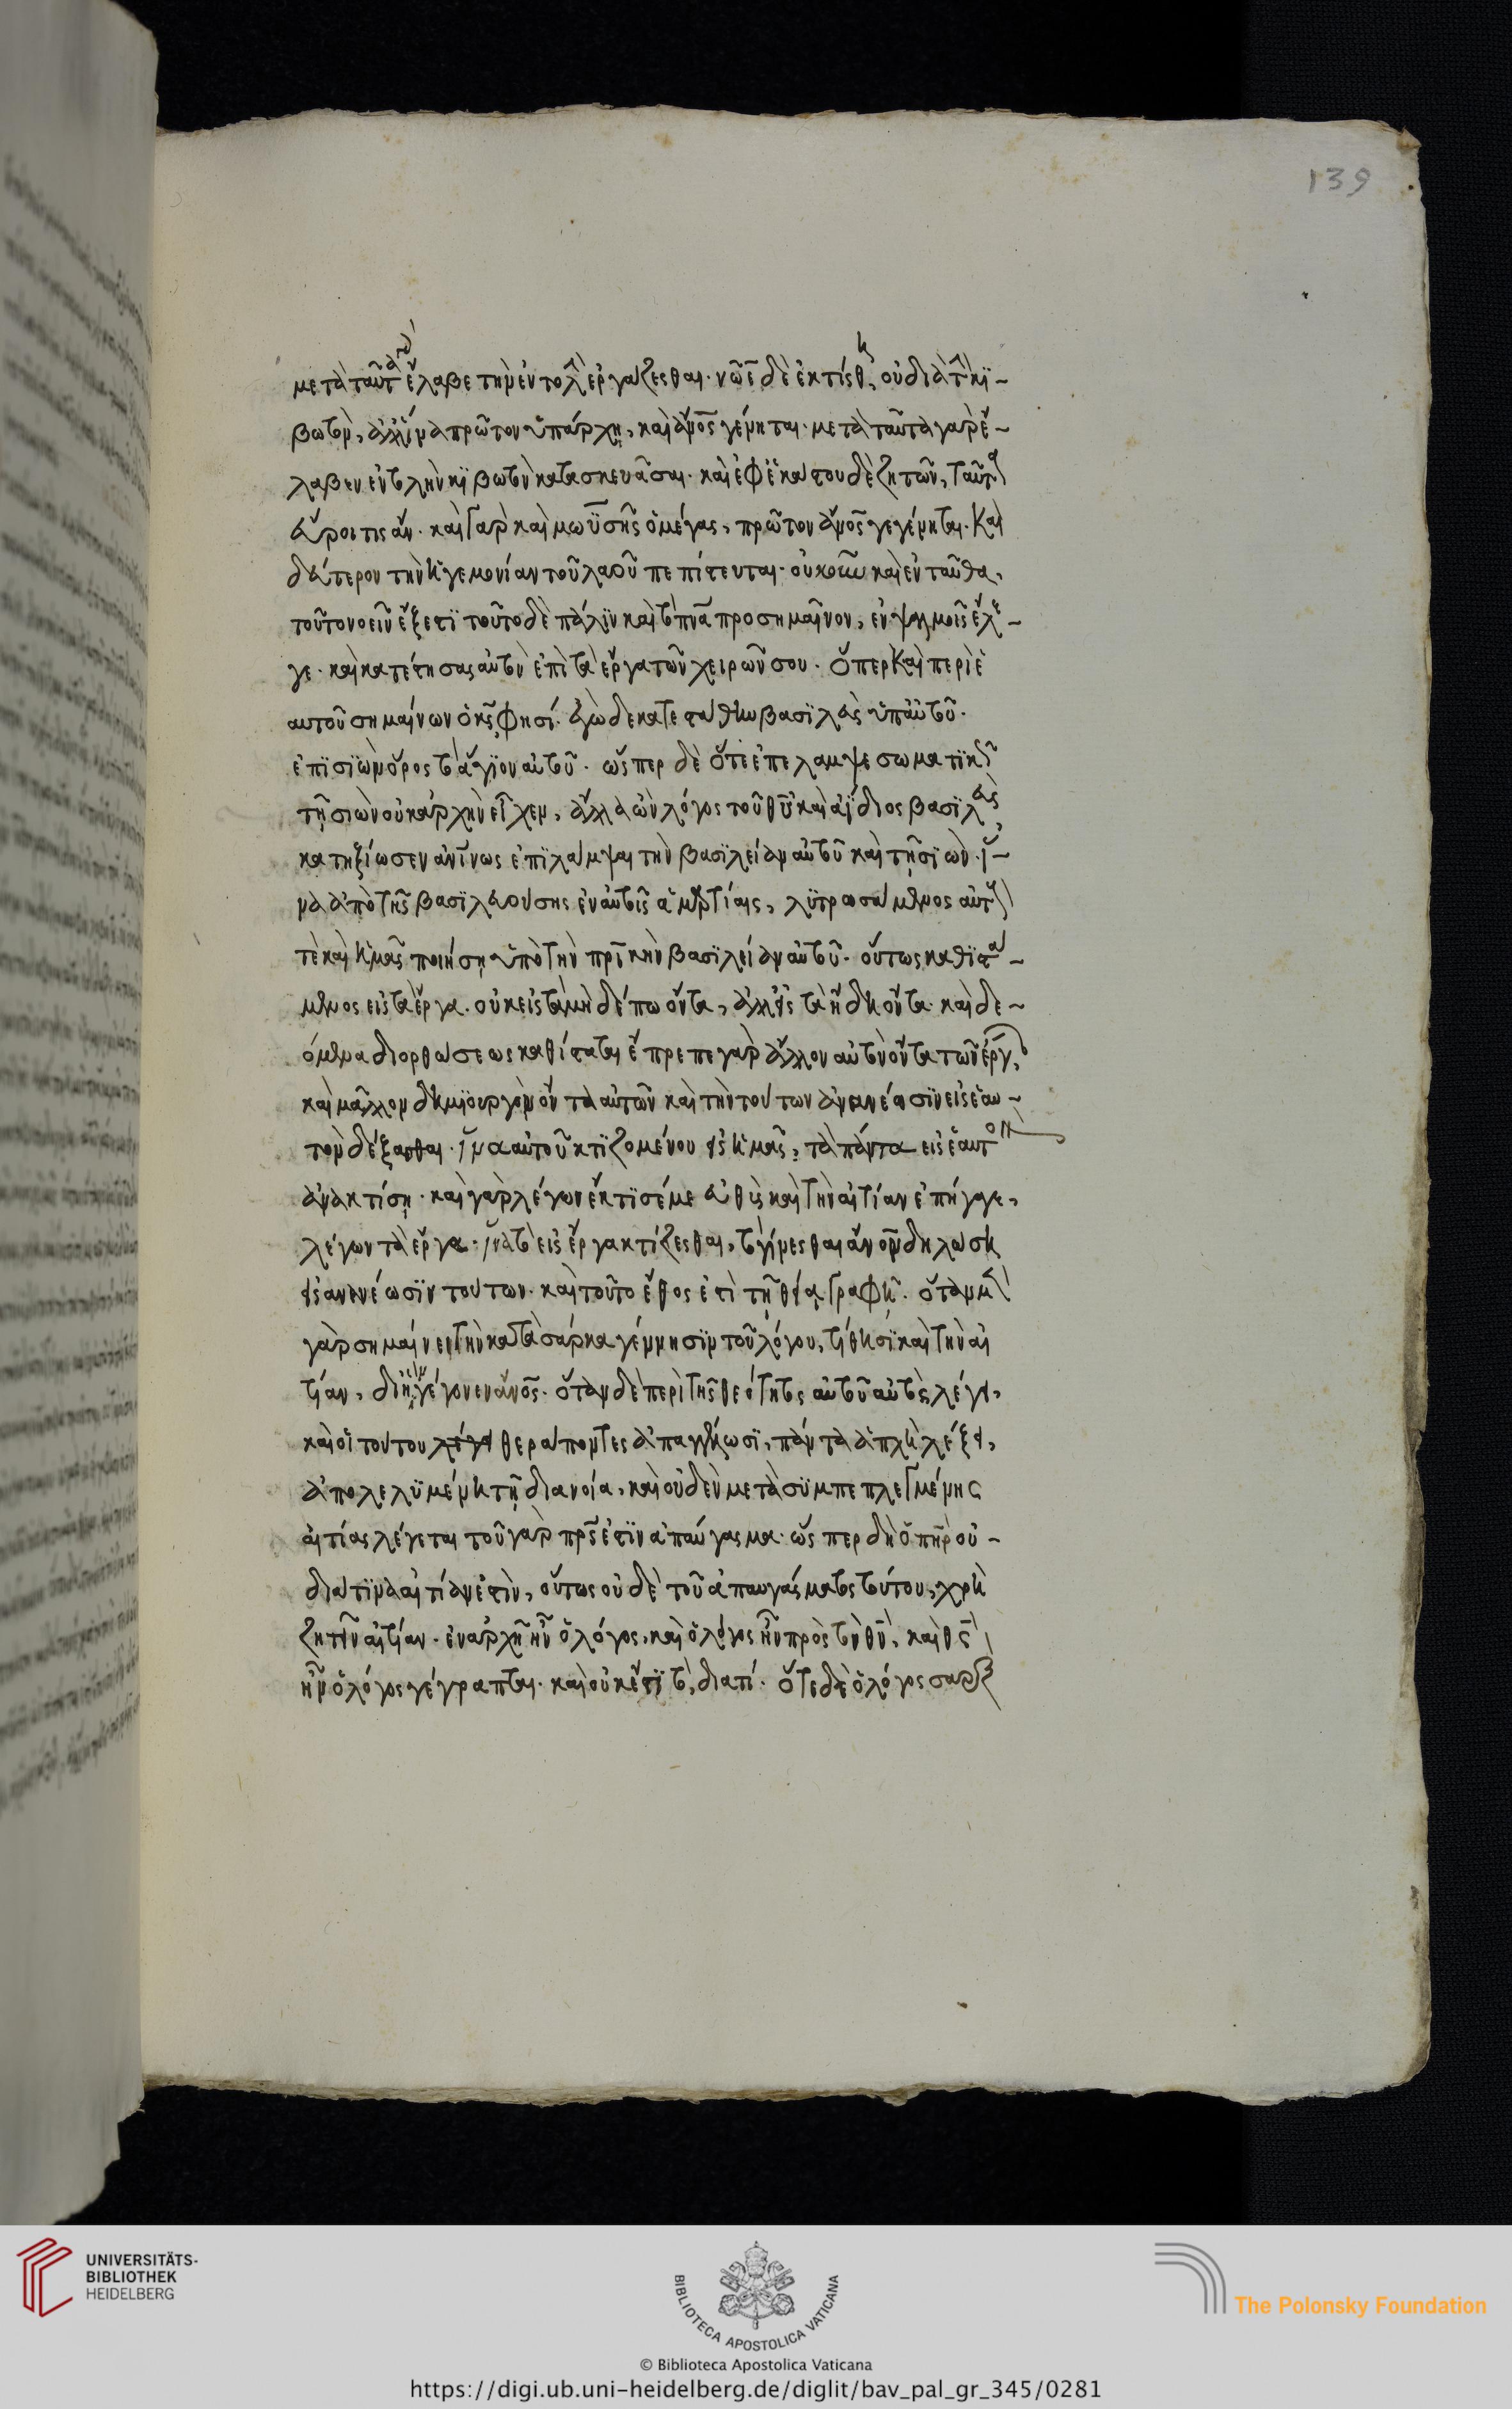 139
μετὰ ταῦτα δὲ ἔλαβε τὴν ἐντολὴν ἐργάζεσθαι· νῶε δὲ ἐκτίσθη, οὐ διὰ τὴν κϊ-
βωτὸν, ἀλλ' ἵνα πρῶτον ὑπάρχῃ, καὶ ἄνος γένηται· μετὰ ταῦτα γὰρ ἔ-
λαβεν ἐντολὴν κϊβωτὸν κατασκευᾶσαι· καὶ ἐφ' ἑκάστου δὲ ζητῶν, ταῦτα
εὕροι τις ἄν· καὶ γὰρ καὶ μωϋσῆς ὁ μέγας, πρῶτον ἄνος γεγένηται· καὶ
δεύτερον τὴν ἡγεμονίαν τοῦ λαοῦ πεπίστευται· οὐκοῦν καὶ ἐνταῦθα,
τοῦτο νοεῖν ἔξεστϊ τοῦτο δὲ πάλϊν καὶ τὸ πνα προσημαῖνον, ἐν ψαλμοῖς ἔλε-
γε· καὶ κατέστησας αὐτὸν ἐπὶ τὰ ἔργα τῶν χειρῶν σου· ὅπερ καὶ περὶ ἑ
αυτοῦ σημαίνων ὁ κς φησί· ἐγὼ δε κατεστάθην βασϊλεὺς ὑπ' αὐτοῦ·
ἐπὶ σϊὼν ὄρος τὸ ἅγϊον αὐτοῦ· ὥσπερ δὲ ὅτε ἐπέλαμψε σωματϊκῶς
τῇ σιὼν οὐκ ἀρχὴν εἶχεν, ἀλλὰ ὢν λόγος τοῦ θυ καὶ ἀΐδιος βασϊλεὺς,
κατηξίωσεν ἀνίνως ἐπϊλάμψαι τὴν βασϊλείαν αὐτοῦ καὶ τῇ σϊών· ἵ-
να ἀπὸ τῆς βασϊλευούσης ἐν αὐτοῖς ἁμαρτίας, λϋτρωσάμενος αὐτοὺς
τὲ καὶ ἡμᾶς ποιήσῃ ὑπὸ τὴν πρικὴν βασϊλείαν αὐτοῦ· οὕτως καθϊστά-
μενος εἰς τὰ ἔργα· οὐκ εἰς τὰ μὴ δέπω ὄντα, ἀλλ' εἰς τὰ ἤδη ὄντα· καὶ δε-
όμενα διορθώσεως καθίσταται ἔπρεπε γὰρ ἄλλον αὐτὸν ὄντα τῶν ἔργων,
καὶ μᾶλλον δημϊουργὸν ὄντα αὐτῶν καὶ τὴν τούτων ἀνανέωσϊν εἰς ἑαυ-
τὸν δέξασθαι· ἵνα αὐτοῦ κτϊζομένου εἰς ἡμᾶς, τὰ πάντα εἰς ἑαυτὸν
ἀνακτίσῃ· καὶ γὰρ λέγων ἔκτϊσέ με εὐθὺς καὶ τὴν αἰτίαν ἐπήγαγε,
λέγων τὰ ἔργα· ἵνα τὸ εἰς ἔργα κτίζεσθαι, τὸ γίνεσθαι ἄνον δηλώσῃ
εἰς ανενέωσϊν τούτων· καὶ τοῦτο ἔθος ἐστὶ τῇ θείᾳ γραφῇ· ὅταν μὲν
γὰρ σημαίνει τὴν κατὰ σάρκα γέννησϊν τοῦ λόγου, τίθησϊ καὶ τὴν αἰ
τίαν, δι' ἣν γέγονεν ἄνος· ὅταν δὲ περὶ τῆς θεότητος αὐτοῦ αὐτὸς λέγει,
καὶ οἱ τούτου θεράποντες ἀπαγγέλωσϊ, πάντα ἁπλῇ λέξει,
ἀπολελϋμένῃ τῇ διανοίᾳ, καὶ οὐδὲν μετὰ συμπεπλεγμένης
αἰτίας λέγεται τοῦ γὰρ πρς ἐστϊν ἀπαύγασμα· ὥσπερ δὴ ὁ πὴρ οὐ-
διά τϊνα αἰτίαν ἐστὶν, οὕτως οὐδὲ τοῦ ἀπαυγάσματος τούτου, χρὴ
ζητεῖν αἰτίαν· ἐν ἀρχῇ ἦν ὁ λόγος, καὶ ὁ λόγος ἦν πρὸς τὸν θν, καὶ θς
ἦν ὁ λόγος γέγραπται· καὶ οὐκ ἔστϊ τὸ, διατί· ὅτε δὲ ὁ λόγος σαρξ
UNIVERSITÄTS-
BIBLIOTHEK
HEIDELBERG
BIBLIOTECA APOSTOLICA VATICANA
The Polonsky Foundation
© Biblioteca Apostolica Vaticana
https://digi.ub.uni-heidelberg.de/diglit/bav_pal_gr_345/0281